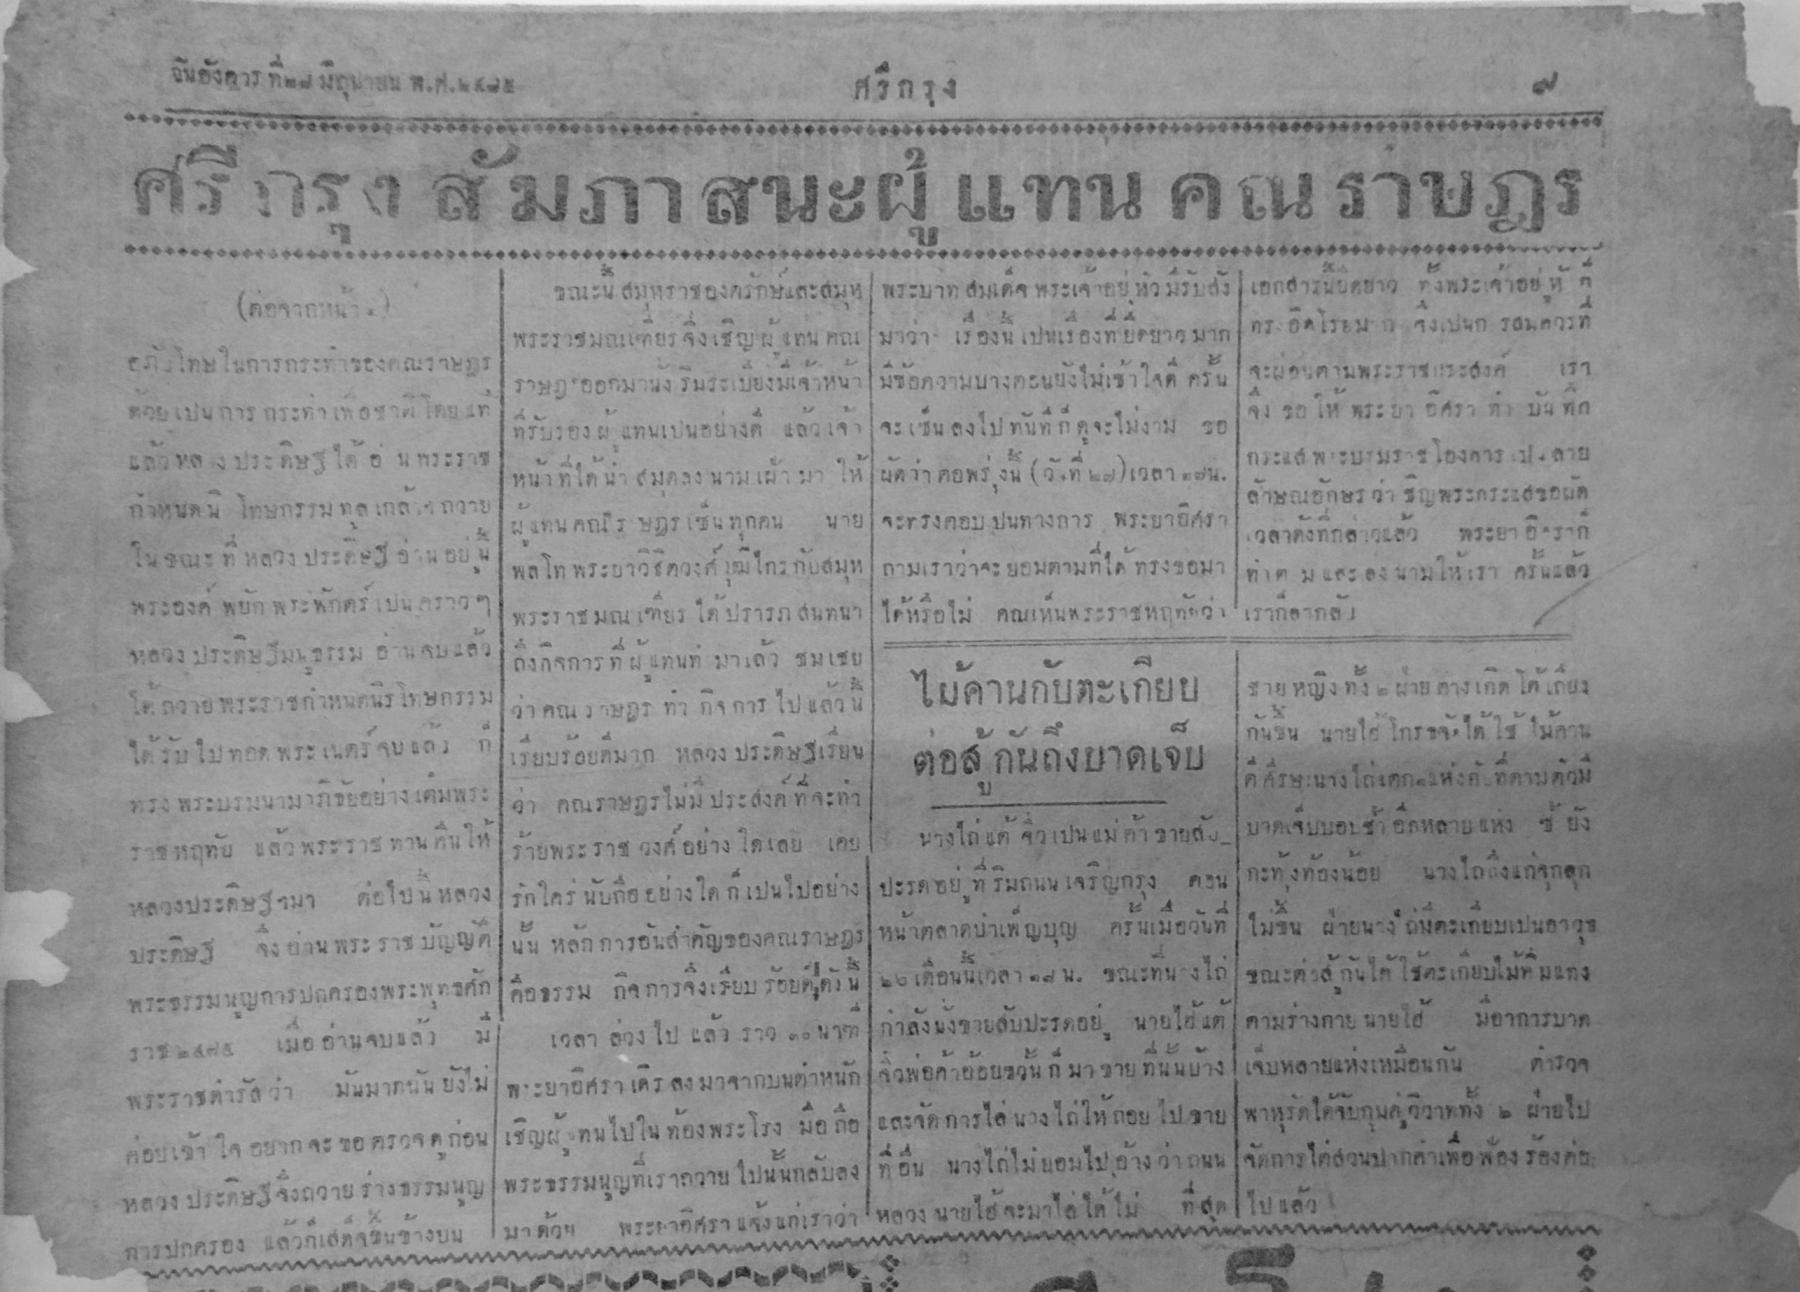 วันอังคาร ที่๒๘ มิถุนายน พ.ศ.๒๔๗๕
ศรีกรุง
๙
ศรีกรุง สัมภาสนะผู้แทนคณราษฎร
(ต่อจากหน้า
อภัยโทษในการกระทำของคณราษฎร
ด้วยเปนการกระทำเพื่อชาติโดยแท้
แล้วหลวงประดิษฐได้อ่านพระราช
กำหนดนิรโทษกรรมทูลเกล้าฯถวาย
ในขณะที่หลวงประดิษฐอ่านอยู่นี้
พระองค์พยักพระพักตร์เปนคราวๆ
หลวงประดิษฐมนูธรรม อ่านจบแล้ว
ได้ถวายพระราชกำหนดนิรโทษกรรม
ได้รับไปทอดพระเนตร์จบแล้ว ก็
ทรงพระบรมนามาภิธัยอย่างเต็มพระ
ราชหฤทัย แล้วพระราชทานคืนให้
หลวงประดิษฐฯมา ต่อไปนี้หลวง
ประดิษฐ จึ่งอ่านพระราชบัญญัติ
พระธรรมนูญการปกครองพระพุทธศัก
ราช๒๔๗๕ เมื่ออ่านจบแล้ว มี
พระราชดำรัสว่า มันมากนัน ยังไม่
ค่อยเข้าใจอยากจะขอตรวจดูก่อน
หลวงประดิษฐจึ่งถวายร่างธรรมนูญ
การปกครอง แล้วก็เสด็จขึ้นข้างบน
ขณะนี้ สมุหราชองครักษ์และสมุห
พระราชมณเฑียรจึ่งเชิญผู้แทนคณ
ราษฎรออกมานั่งริมระเบียงมีเจ้าหน้า
ที่รับรองผู้แทนเปนอย่างดี แล้วเจ้า
หน้าที่ได้นำสมุดลงนามเฝ้ามาให้
ผู้แทนคณราษฎรเซ็นทุกคน นาย
พลโทพระยาวิชิตวงศ์วุฒิไกรกับสมุห
พระราชมณเฑียรได้ปรารภสนทนา
ถึงกิจการที่ผู้แทนทำมาแล้ว ชมเชย
ว่าคณราษฎรทำกิจการไปแล้วนี้
เรียบร้อยดีมาก หลวงประดิษฐเรียน
ว่า คณราษฎรไม่มีประสงค์ที่จะทำ
ร้ายพระราชวงศ์อย่างใดเลย เคย
รักใคร่นับถืออย่างใดก็เปนไปอย่าง
นั้น หลักการอันสำคัญของคณราษฎร
คือธรรม กิจการจึ่งเรียบร้อยดีดังนี้
เวลาล่วงไปแล้วราว ๓๐ นาฑี
พระยาอิศราเดิรลงมาจากบนตำหนัก
เชิญผู้แทนไปในท้องพระโรง มือถือ
พระธรรมนูญที่เราถวายไปนั้นกลับลง
มาด้วย พระยาอิศราแจ้งแก่เราว่า
พระบาทสมเด็จพระเจ้าอยู่หัวมีรับสั่ง
มาว่า เรื่องนี้เปนเรื่องที่ยืดยาวมาก
มีข้อความบางตอนยังไม่เข้าใจดี ครั้น
จะเซ็นลงไปทันทีก็ดูจะไม่งาม ขอ
ผัดว่าต่อพรุ่งนี้ (วันที่ ๒๗) เวลา ๑๗น.
จะทรงตอบเปนทางการ พระยาอิศรา
ถามเราว่าจะยอมตามที่ได้ทรงขอมา
ได้หรือไม่ คณเห็นพระราชหฤทัยว่า
เอกสารนี้ยืดยาว ทั้งพระเจ้าอยู่หัวก็
ทรงอิดโรยมาก จึ่งเปนการสมควรที่
จะผ่อนตามพระราชประสงค์ เรา
จึ่งขอให้พระยาอิศราทำบันทึก
กระแสพระบรมราชโองการเปนลาย
ลักษณอักษรว่า เชิญพระกระแสขอผัด
เวลาดังที่กล่าวแล้ว พระยาอิศราก็
ทำตามและลงนามให้เรา ครั้นแล้ว
เราก็ลากลับ
ไม้คานกับตะเกียบ
ต่อสู้กันถึงบาดเจ็บ
นางไถ่แต้จิ๋วเปนแม่ค้าขายสับ_
ปะรดอยู่ที่ริมถนนเจริญกรุง ตอน
หน้าตลาดบำเพ็ญบุญ ครั้นเมื่อวันที่
๒๖ เดือนนี้เวลา ๑๗ น. ขณะที่นางไถ่
กำลังนั่งขายสับปะรดอยู่ นายไฮ้แต้
จิ๋วพ่อค้าอ้อยขวั้นก็มาขายที่นั้นบ้าง
และจัดการไล่นางไถ่ให้ถอยไปขาย
ที่อื่น นางไถ่ไม่ยอมไปอ้างว่าถนน
หลวงนายไฮ้จะมาไล่ได้ไม่ ที่สุด
ชายหญิงทั้ง ๒ ฝ่ายต่างเกิดโต้เถียง
กันขึ้น นายไฮ้โกรธจัดได้ใช้ไม้คาน
ตีศีรษะนางไถ่แตก แห่งกับที่ตามตัวมี
บาดเจ็บบอบช้ำอีกหลายแห่ง ซ้ำยัง
กะทุ้งท้องน้อย นางไถ่ถึงแก่จุกลุก
ไม่ขึ้น ฝ่ายนางไถ่มีตะเกียบเปนอาวุธ
ขณะต่อสู้กันได้ใช้ตะเกียบไม้ทิ่มแทง
ตามร่างกายนายไฮ้ มีอาการบาด
เจ็บหลายแห่งเหมือนกัน ตำรวจ
พาหุรัดได้จับกุมคู่วิวาททั้ง ๒ ฝ่ายไป
จัดการไต่สวนปากคำเพื่อฟ้องร้องต่อ
ไปแล้ว